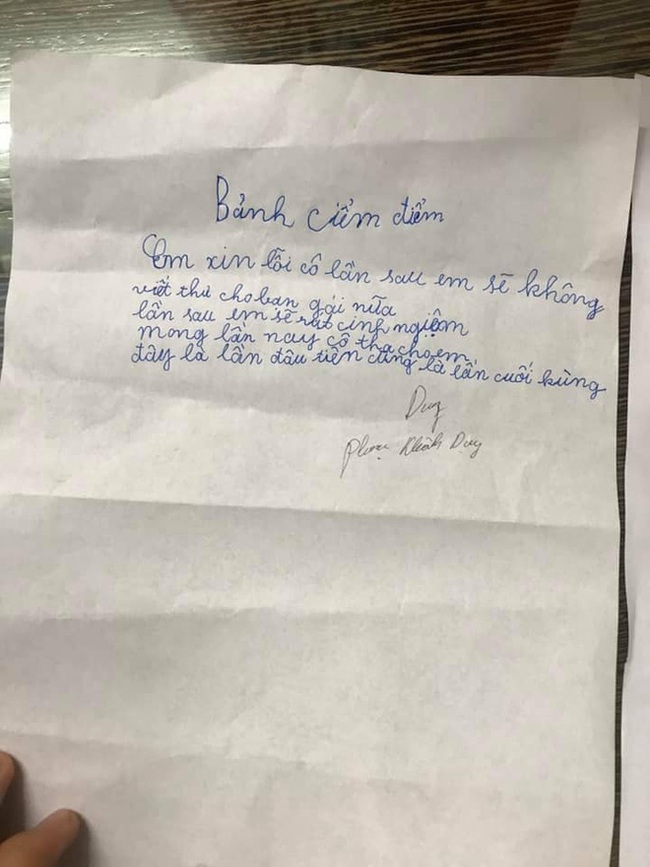 Bảnh ciểm điểm
Em xin lỗi cô lần sau em sẽ không
viết thư cho bạn gái nữa
lần sau em sẽ rút cinh ngiệm
mong lần nay cô tha cho em
đây là lần đầu tiên cũng là lần cuối kùng
Duy
Phạm Khánh Duy